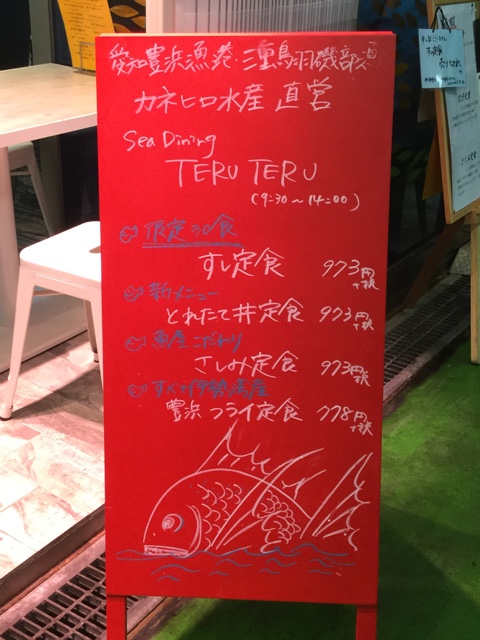 愛知豊浜漁港・三重鳥羽磯部
カネヒロ水産 直営
Sea Dining
TERU TERU
(9:30～14:00)
限定30食
すし定食 973円+税
新メニュー
とれたて丼定食 973円+税
魚屋こだわり
さしみ定食 973円+税
すべて伊勢湾産
豊浜フライ定食 778円+税